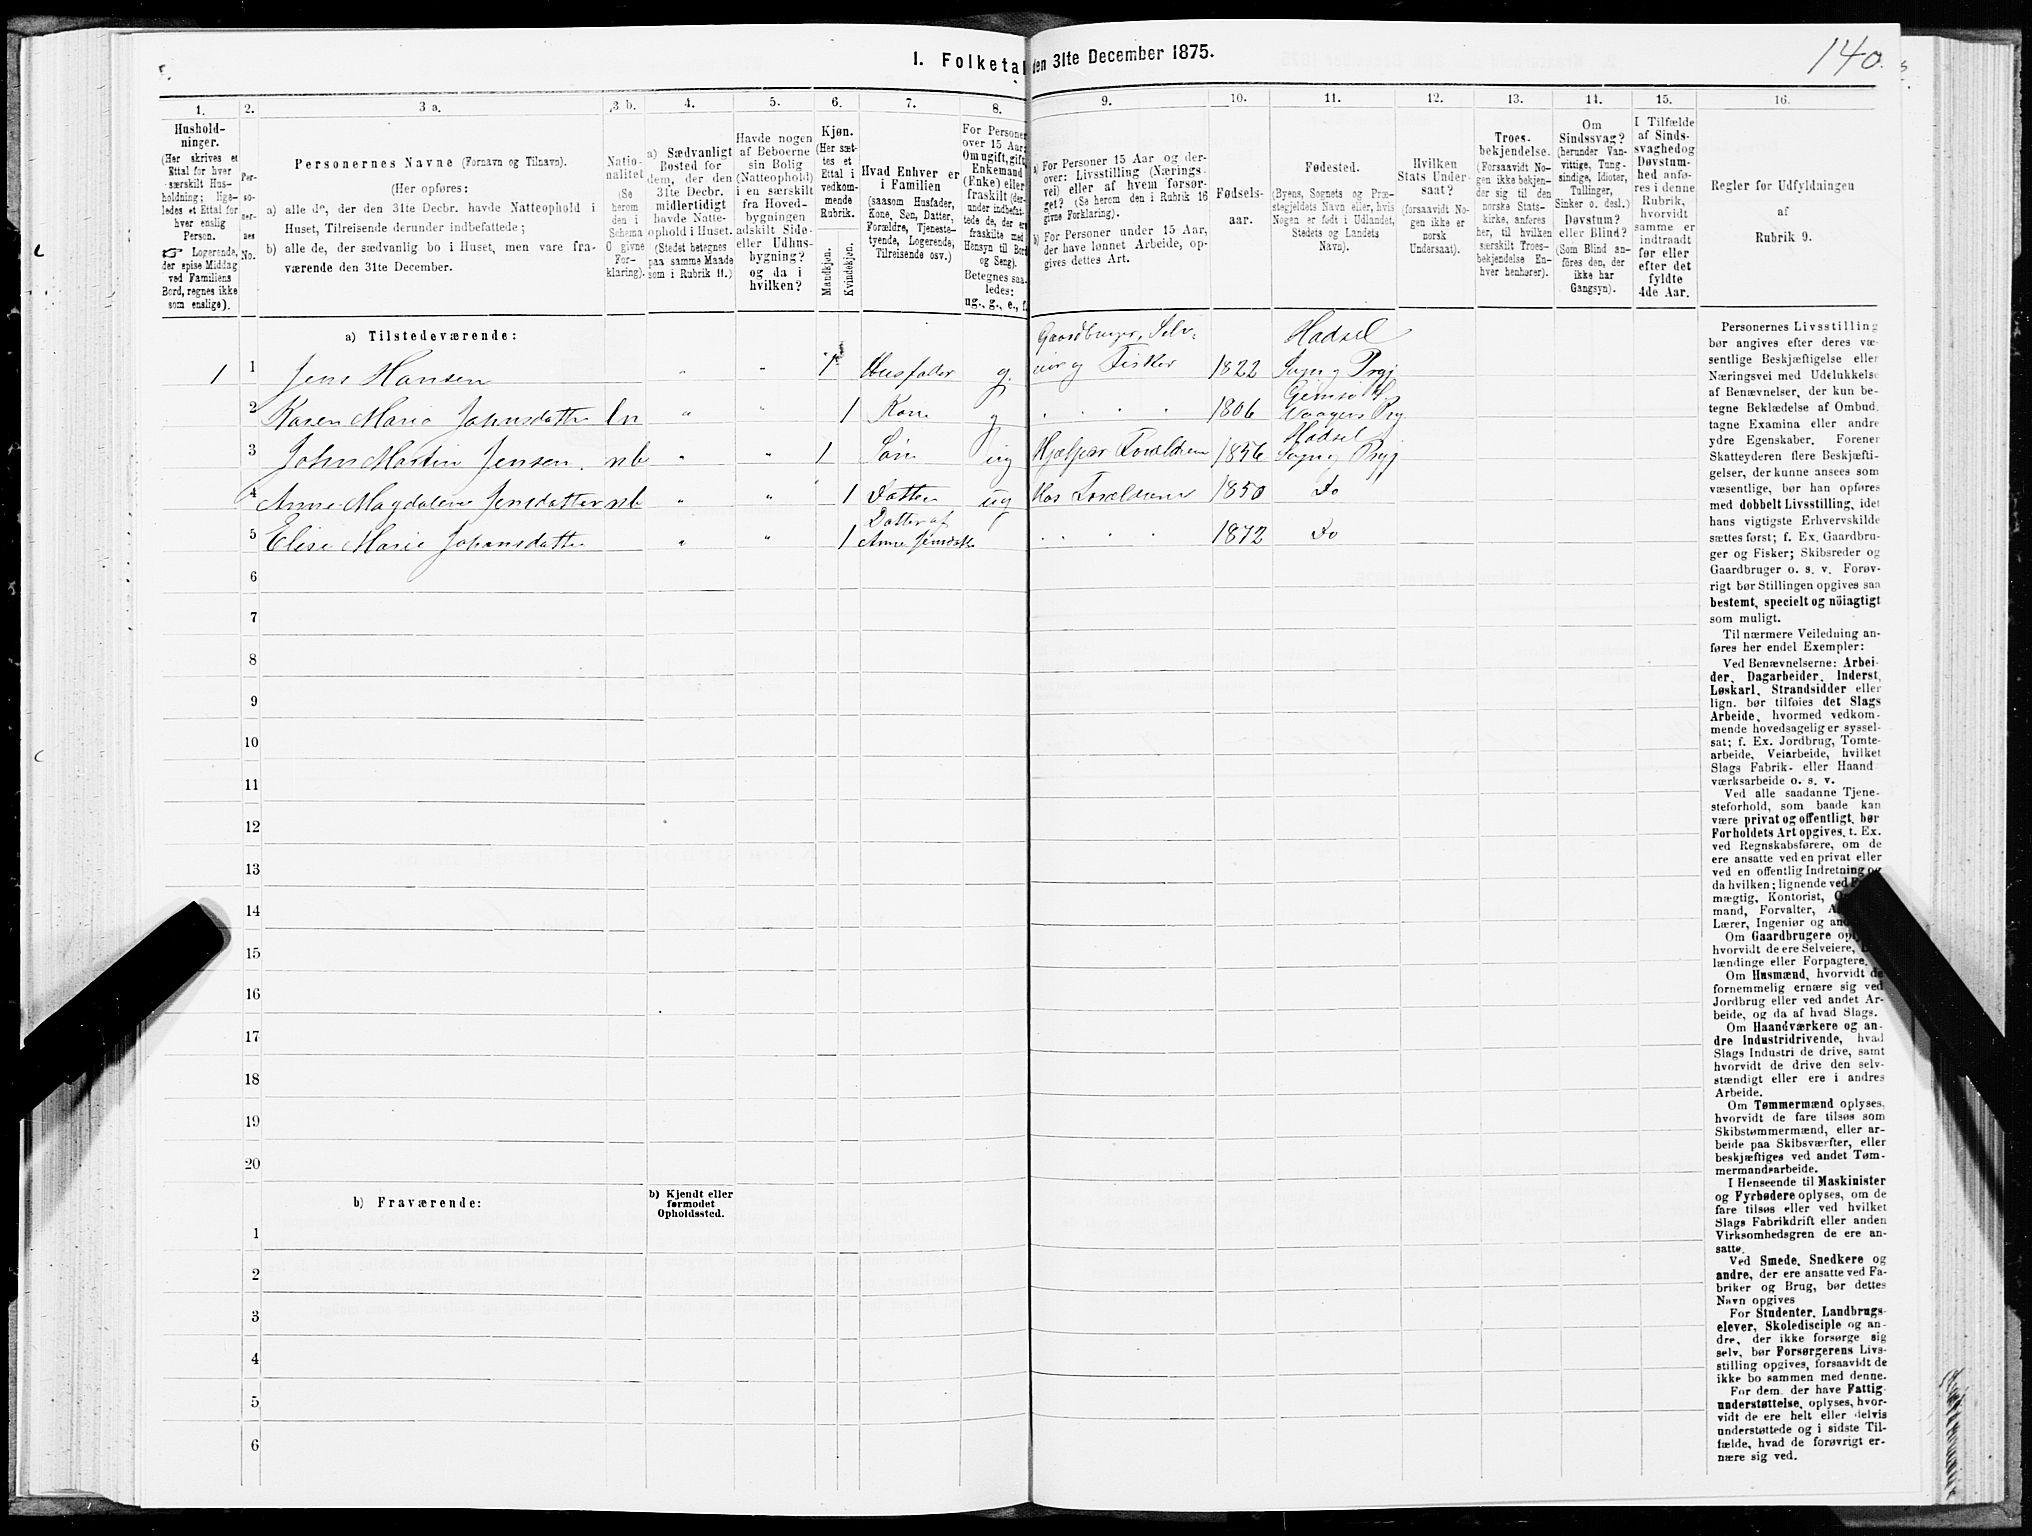 1. Folketal den 31te December 1875.
140.
1. 2. 3 a. 3 b. 4. 5. 6. 7. 8. 9. 10. 11. 12. 13. 14. 15. 16.
Hushold-
ninger.
(Her skrives et
Ettal for hver
særskilt Hus-
holdning; lige-
ledes et Ettal for
hver enslig
Person.
☞ Logerende,
der spise Middag
ved Familiens
Bord, regnes ikke
som enslige).
Per-
so-
ner-
nes
No.
Personernes Navne (Fornavn og Tilnavn).
(Her opføres:
a) alle de, der den 31te Decbr. havde Natteophold i
Huset, Tilreisende derunder indbefattede;
b) alle de, der sædvanlig bo i Huset, men vare fra-
værende den 31te December.
Natio-
nalitet
(Se
herom
den i
Schema
O givne
For-
klaring).
a) Sædvanligt
Bosted for
dem, der den
31te Decbr.
midlertidigt
havde Natte-
ophold i Huset.
(Stedet betegnes
paa samme Maade
som i Rubrik 11.)
Havde nogen
af Beboerne
sin Bolig
(Natteophold)
i en særskilt
fra Hoved-
bygningen
adskilt Side-
eller Udhus-
bygning?
og da i
hvilken?
Kjøn.
(Her sæt-
tes et
Ettal i
vedkom-
mende
Rubrik.
Mandkjøn.
Kvindekjøn.
Hvad Enhver er
i Familien
(saasom Husfader,
Kone, Søn, Datter,
Forældre, Tjeneste-
tyende, Logerende,
Tilreisende osv.)
For Personer
over 15 Aar:
Om ugift, gift,
Enkemand
(Enke) eller
fraskilt (der-
under indbefat-
tede de, der ere
fraskilte med
Hensyn til Bord
og Seng).
Betegnes saa-
ledes:
ug., g., e., f.
a) For Personer 15 Aar og der-
over: Livsstilling (Nærings-
vei) eller af hvem forsør-
get? (Se herom den i Rubrik 16
givne Forklaring).
b) For Personer under 15 Aar,
der have lønnet Arbeide, op-
gives dettes Art.
Fødsels-
aar.
Fødested.
(Byens, Sognets og Præ-
stegjeldets Navn eller, hvis
Nogen er født i Udlandet,
Stedets og Landets
Navn).
Hvilken
Stats Under-
saat?
(forsaavidt No-
gen ikke er
norsk
Undersaat).
Troes-
bekjendelse.
(Forsaavidt No-
gen ikke bekjen-
der sig til den
norske Stats-
kirke, anføres
her, til hvilken
særskilt Troes-
bekjendelse En-
hver henhører).
Om
Sindssvag?
(herunder Van-
vittige, Tung-
sindige, Idioter,
Tullinger,
Sinker o. desl.)
Døvstum?
eller Blind?
(Som Blind an-
føres den, der
ikke har
Gangsyn).
I Tilfælde
af Sinds-
svaghed og
Døvstum-
hed anfø-
res i denne
Rubrik,
hvorvidt
samme er
indtraadt
før eller
efter det
fyldte
4de Aar.
Regler for Udfyldningen
af
Rubrik 9.
a) Tilstedeværende:
1 1 Jens Hansen " " 1 Husfader g. Gaardbruger, Selv-
eier og Fisker 1822 Hadsel
Sogn og Prgj
2 Karen Maria Johnsdatter ln " " 1 Kone g " " " " 1806 Gimsø
Vaagens Prg
3 John Martin Jensen. nb " " 1 Søn ug Hjælper Forældrene 1856 Hadsel
Sogn og Prgj
4 Anne Magdalene Jensdatter nb " " 1 Datter ug Hos Forældrene 1850 Do
5 Elise Marie Johansdatter " " 1 Datter af
Anne Jensdatter " " " " 1872 Do
6
7
8
9
10
11
12
13
14
15
16
17
18
19
20
b) Fraværende:
b) Kjendt eller
formodet
Opholdssted.
1
2
3
4
5
6
Personernes Livsstilling
bør angives efter deres væ-
sentlige Beskjæftigelse eller
Næringsvei med Udelukkelse
af Benævnelser, der kun be-
tegne Beklædelse af Ombud,
tagne Examina eller andre
ydre Egenskaber. Forener
Skatteyderen flere Beskjæfti-
gelser, der kunne ansees som
væsentlige, bør han opføres
med dobbelt Livsstilling, idet
hans vigtigste Erhvervskilde
sættes først; f. Ex. Gaardbru-
ger og Fisker; Skibsreder og
Gaardbruger o. s. v. Forøv-
rigt bør Stillingen opgives saa
bestemt, specielt og nöiagtigt
som muligt.
Til nærmere Veiledning an-
føres her endel Exempler:
Ved Benævnelserne: Arbei-
der, Dagarbeider, Inderst,
Løskarl, Strandsidder eller
lign. bør tilføies det Slags
Arbeide, hvormed vedkom-
mende hovedsagelig er syssel-
sat; f. Ex. Jordbrug, Tomte-
arbeide, Veiarbeide, hvilket
Slags Fabrik- eller Haand-
værksarbeide o. s. v.
Ved alle saadanne Tjene-
steforhold, som baade kan
være privat og offentligt, bør
Forholdets Art opgives, t. Ex.
ved Regnskabsførere, om de
ere ansatte ved en privat eller
ved en offentlig Indretning og
da hvilken; lignende ved
mægtig, Kontorist,
mand, Forvalter,
Lærer, Ingeniør og
Om Gaardbrugere
hvorvidt de ere Selveiere,
lændinge eller Forpagtere.
Om Husmænd, hvorvidt de
fornemmelig ernære sig ved
Jordbrug eller ved andet Ar-
beide, og da af hvad Slags.
Om Haandværkere og an-
dre Industridrivende, hvad
Slags Industri de drive, samt
hvorvidt de drive den selv-
stændigt eller ere i andres
Arbeide.
Om Tømmermænd oplyses,
hvorvidt de fare tilsøs som
Skibstømmermænd, eller ar-
beide paa Skibsværfter, eller
beskjæftiges ved andet Tøm-
mermandsarbeide.
I Henseende til Maskinister
og Fyrbødere oplyses, om de
fare tilsøs eller ved hvilket
Slags Fabrikdrift eller anden
Virksomhedsgren de ere an-
satte.
Ved Smede, Snedkere og
andre, der ere ansatte ved Fa-
briker og Brug, bør dettes
Navn opgives
For Studenter, Landbrugs-
elever, Skoledisciple og an-
dre, der ikke forsørge sig
selv, bør Forsørgerens Livs-
stilling opgives, forsaavidt de
ikke bo sammen med denne.
For dem, der have Fattig-
understøttelse, oplyses, hvor-
vidt de ere helt eller delvis
understøttede og i sidste Til-
fælde, hvad de forøvrigt er-
nære sig ved.